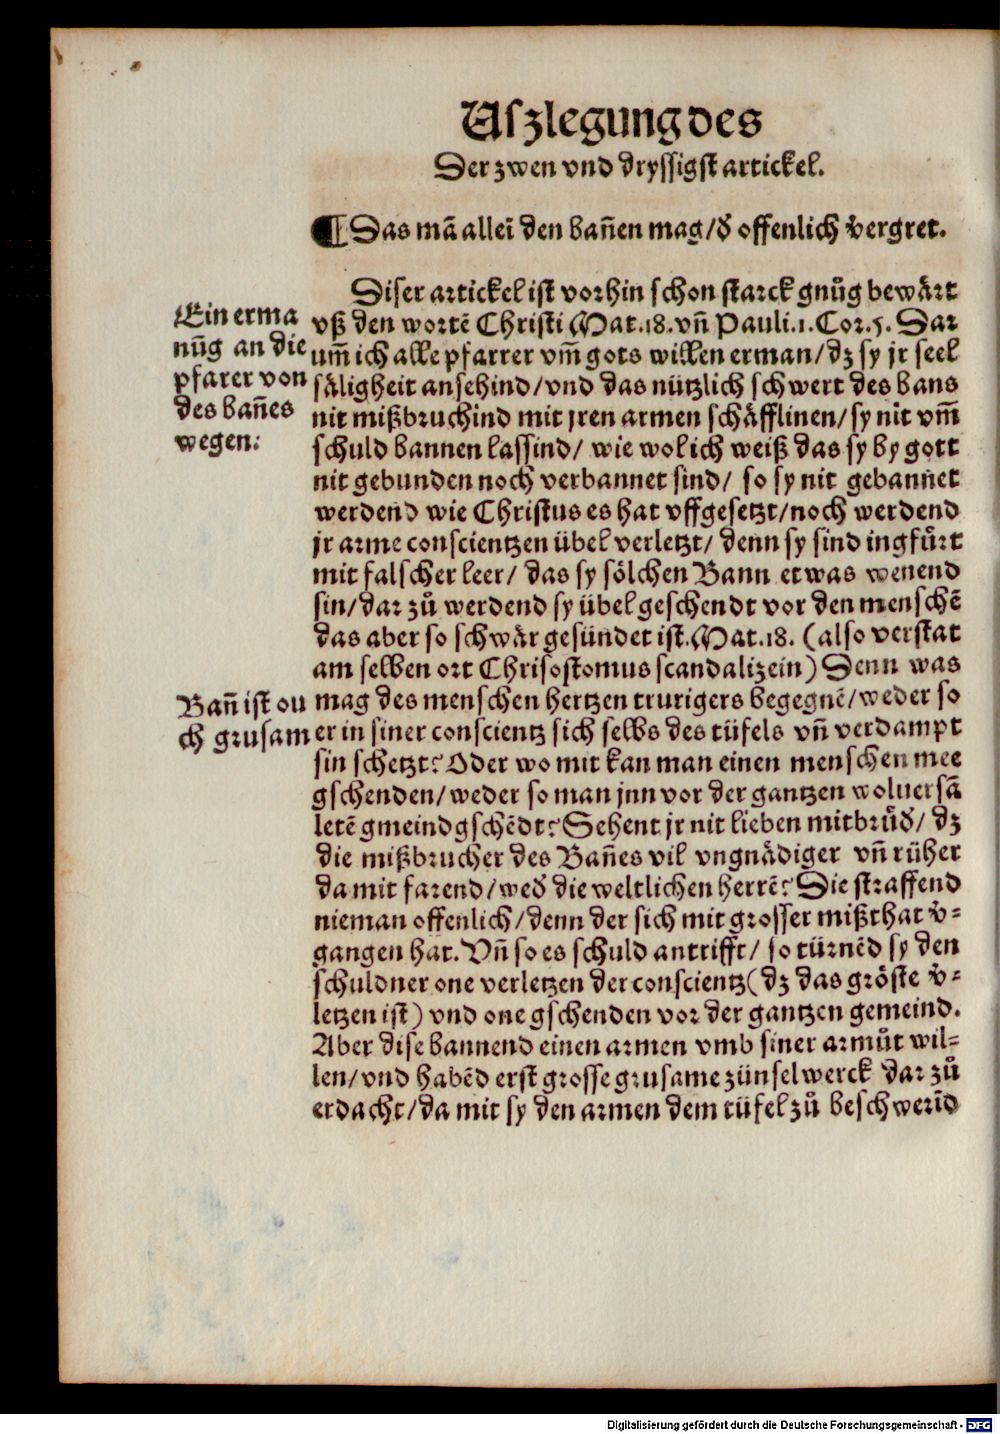 Uszlegung des
Der zwen vnd dryssigst artickel.
¶ Das mā alleī den bañen mag/ď offenlich v̓ergret.
Diser artickel ist vorhin schon starck gnůg bewårt
vß den wortē Christi Mat.18.vñ Pauli.1.Cor.5. Dar
um̄ ich alle pfarrer vm̄ gots willen erman/dz sy jr seel
såligheit ansehind/vnd das nützlich schwert des bans
nit mißbruchind mit jren armen schåfflinen/sy nit vm̄
schuld bannen lassind/ wie wol ich weiß das sy by gott
nit gebunden noch verbannet sind/ so sy nit gebannet
werdend wie Christus es hat vffgesetzt/noch werdend
jr arme conscientzen übel verletzt/ denn sy sind ingfůrt
mit falscher leer/ das sy sölchen Bann etwas wenend
sin/dar zů werdend sy übel geschendt vor den menschē
das aber so schwår gesündet ist.Mat.18. (also verstat
am selben ort Chrisostomus scandalizein) Denn was
mag des menschen hertzen trurigers begegnē/weder so
er in siner conscientz sich selbs des tüfels vñ verdampt
sin schetzt? Oder wo mit kan man einen menschen mee
gschenden/weder so man jnn vor der gantzen woluersā
letē gmeind gschēdt? Sehent jr nit lieben mitbrůď/ dz
die mißbrucher des Bañes vil vngnådiger vñ rüher
da mit farend/weď die weltlichen herrē? Die straffend
nieman offenlich/denn der sich mit grosser mißthat v̓=
gangen hat. Vñ so es schuld antrifft/ so türnēd sy den
schuldner one verletzen der conscientz(dz das gröste v̓=
letzen ist) vnd one gschenden vor der gantzen gemeind.
Aber dise bannend einen armen vmb siner armůt wil=
len/vnd habēd erst grosse grusame zünselwerck dar zů
erdacht/da mit sy den armen dem tüfel zů beschwerīd
Ein erma
nūg an die
pfarer von
des bañes
wegen:
Bañ ist ou
ch grusam
Digitalisierung gefördert durch die Deutsche Forschungsgemeinschaft - DFG